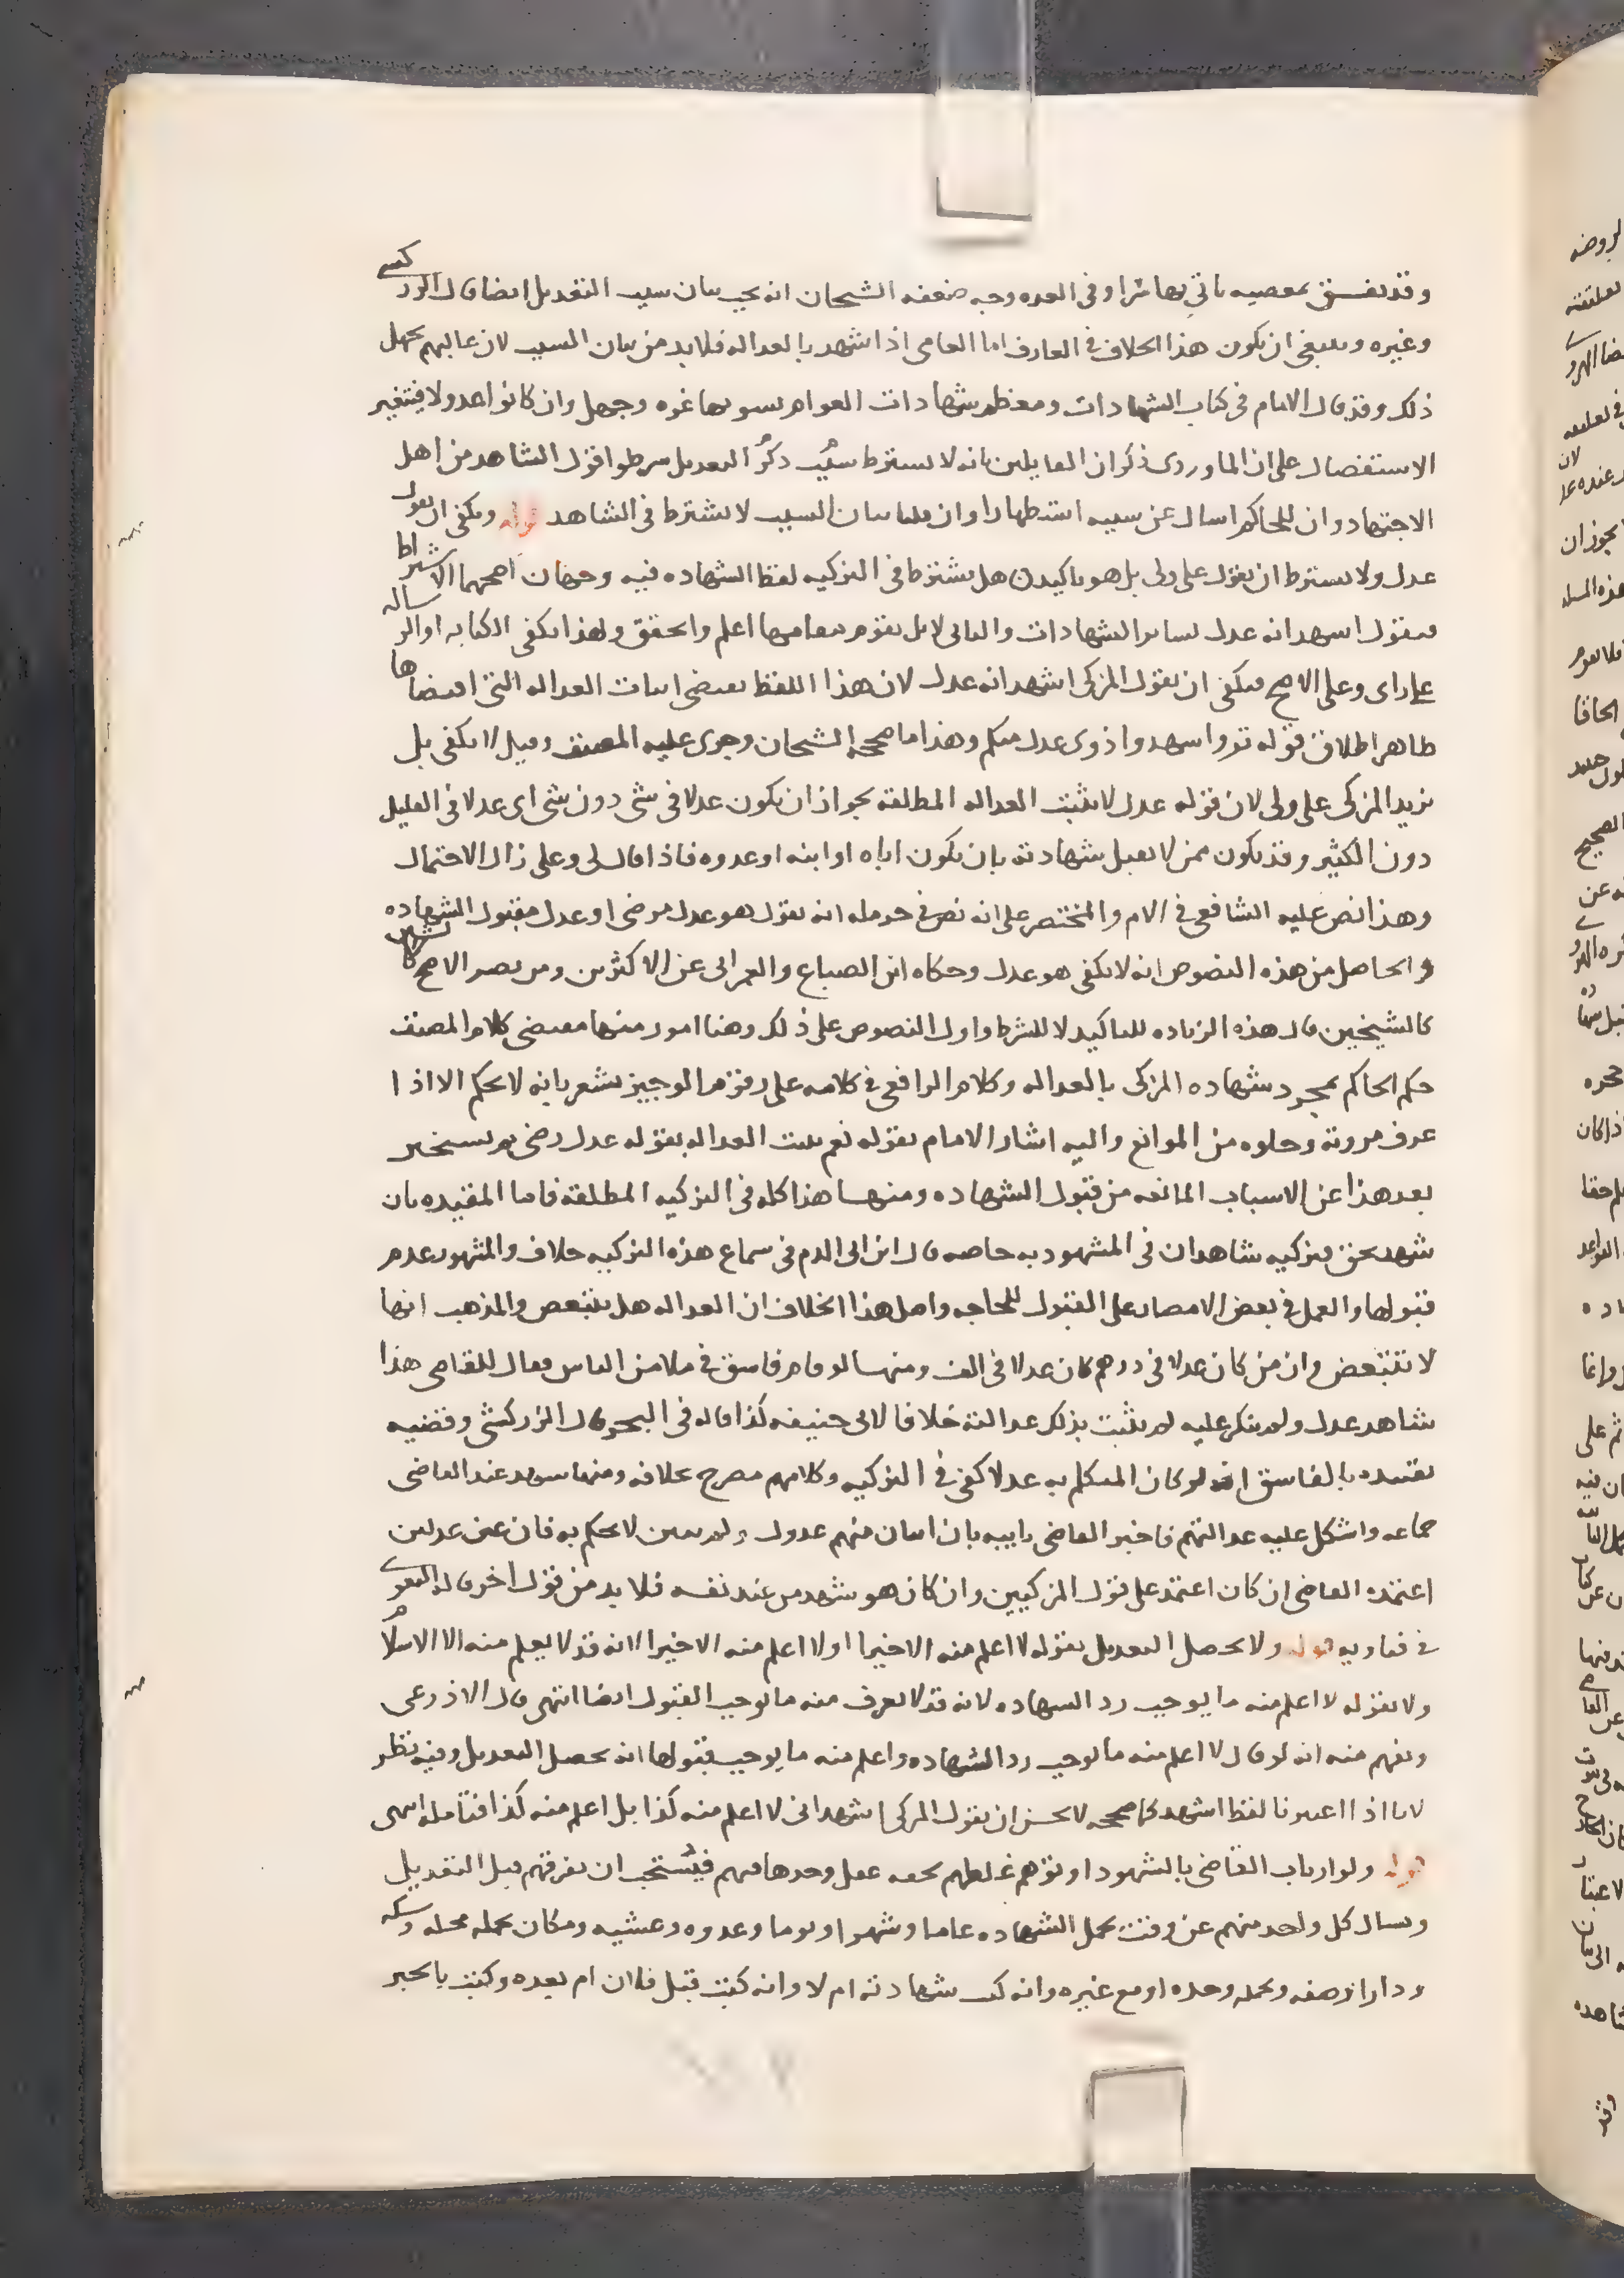 وقد يفسق بمعصيه ياتي بها سرا وفي العده وجه ضعفه الشيخان انه يجب بيان سبب التعديل ايضا قال الزركشي
وغيره وينبغي ان يكون هذا الخلاف في العارف اما العامي اذا شهد بالعداله فلا بد من بيان السبب لان غالبهم يجهل
ذلك وقد قال الامام في كتاب الشهادات ومعظم شهادات العوام يشوبها غره وجهل وان كانوا عدولا فيتعين
الاستفصال على ان الماوردي ذكر ان القايلين بانه لا يشترط ذكر سبب التعديل شرطوا قول الشاهد من اهل
الاجتهاد وان للحاكم اسال عن سببه استظهارا وان قلنا بيان السبب لا يشترط في الشاهد قوله ويكفي ان يقول
عدل ولا يشترط ان يقول علي ولي بل هو تاكيد هل يشترط في التزكيه لفظ الشهاده فيه وجهان اصحهما الاشتراط
فيقول اشهد انه عدل كساير الشهادات والثاني لا بل يقوم مقامها اعلم واتحقق ولهذا يكفي الكتابه او الرساله
على راي وعلى الاصح فيكفي ان يقول المزكي اشهد انه عدل لان هذا اللفظ يقتضي اثبات العداله التي اقتضاها
ظاهر اطلاق قوله تع واشهدوا ذوي عدل منكم وهذا ما صححه الشيخان وجرى عليه المصنف وقيل لا يكفي بل
يزيد المزكي علي ولي لان قوله عدل لا يثبت العداله المطلقه بجواز ان يكون عدلا في شي دون شي اي عدلا في القليل
دون الكثير وقد يكون ممن لا يقبل شهادته بان يكون اباه او ابنه او عدوه فاذا قال لي وعلي زال الاحتمال
وهذا نص عليه الشافعي في الام والمختصر على انه نص في حرمله انه يقول هو عدل مرضي او عدل مقبول الشهاده
والحاصل من هذه النصوص انه لا يكفي هو عدل وحكاه ابن الصباغ والعمراني عن الاكثرين ومن يصر الاصح
كالشيخين قال هذه الزياده للتاكيد لا للشرط واول النصوص على ذلك وهنا امور منها مقتضى كلام المصنف
حكم الحاكم بمجرد شهاده المزكي بالعداله وكلام الرافعي في كلامه على رقوم الوجيز يشعر بانه لا يحكم الا اذا
عرف مروته وخلوه من الموانع واليه اشار الامام بقوله نعم يثبت العداله بقوله عدل رضي ثم يستخبر
بعد هذا عن الاسباب المانعه من قبول الشهاده ومنها هذا كله في التزكيه المطلقه فاما المقيده بان
شهد بحق فيزكيه شاهدان في المشهود به خاصه قال ابن ابي الدم في سماع هذه التزكيه خلاف والمشهور عدم
قبولها والعمل في بعض الامصار على القبول للحاجه واصل هذا الخلاف ان العداله هل تتبعض والمذهب انها
لا تتبعض وان من كان عدلا في درهم كان عدلا في الف ومنها لو قام فاسق في ملا من الناس فقال للقاضي هذا
شاهد عدل ولم ينكر عليه لم يثبت بذلك عدالته خلافا لابي حنيفه كذا قاله في البحر قال الزركشي وقضيه
تقييده بالفاسق انه لو كان المتكلم به عدلا كفى في التزكيه وكلامهم مصرح بخلافه ومنها شهد عند القاضي
جماعه واشكل عليه عدالتهم فاخبر القاضي نايبه بان اثنان منهم عدول ولم يعين لا يحكم به فان عين عدلين
اعتمده القاضي ان كان اعتمد على قول المزكيين وان كان هو شهد من عند نفسه فلا بد من قول اخر قاله البغوي
في فتاويه قوله ولا يحصل التعديل بقوله لا اعلم منه الا خيرا او لا اعلم منه الا خيرا لانه قد لا يعلم منه الا الاسلام
ولا بقوله لا اعلم منه ما يوجب رد الشهاده لانه قد لا يعرف منه ما يوجب القبول ايضا انتهى قال الاذرعي
ويفهم منه انه لو قال لا اعلم منه ما يوجب رد الشهاده واعلم منه ما يوجب قبولها انه يحصل التعديل وفيه نظر
لانا اذا اعتبرنا لفظ اشهد كما صححه لا يحسن ان يقول المزكي اشهد اني لا اعلم منه كذا بل اعلم منه كذا فتامله انتهى
قوله ولو ارتاب القاضي بالشهود او توهم غلطهم لخفه عقل وجدها فيهم فيستحب ان يفرقهم قبل التعديل
ويسال كل واحد منهم عن وقت تحمل الشهاده عاما وشهرا ويوما وغدوه وعشيه ومكان تحمله محله وسكه
ودارا وصفه وتحمله وحده او مع غيره وانه كتب شهادته ام لا وانه كتبت قبل فلان ام بعده وكتبت بالحبر